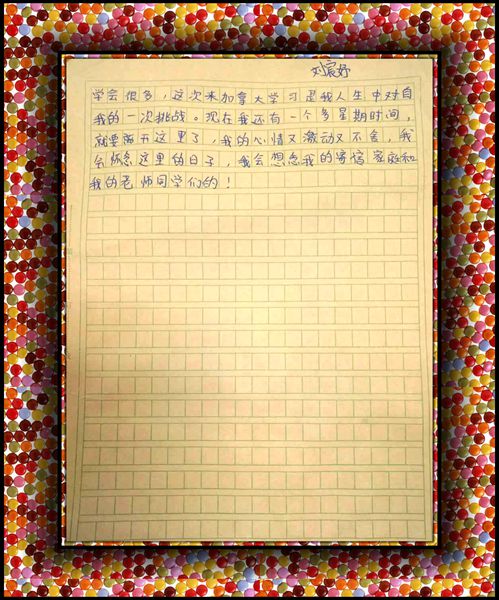 刘宸妤
学会很多，这次来加拿大学习是我人生中对自
我的一次挑战。现在我还有一个多星期时间，
就要离开这里了，我的心情又激动又不舍，我
会怀念这里的日子，我会想念我的寄宿家庭和
我的老师同学们的！